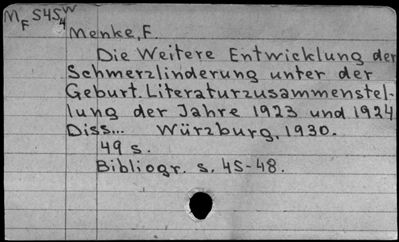 M_F S4S_4^W
Menke, F.
Die Weitere Entwicklung der
Schmerzlinderung unter der
Geburt. Literaturzusammenstel-
lung der Jahre 1923 und 1924.
Diss... Würzburg, 1930.
49 s.
Bibliogr. s. 45-48.